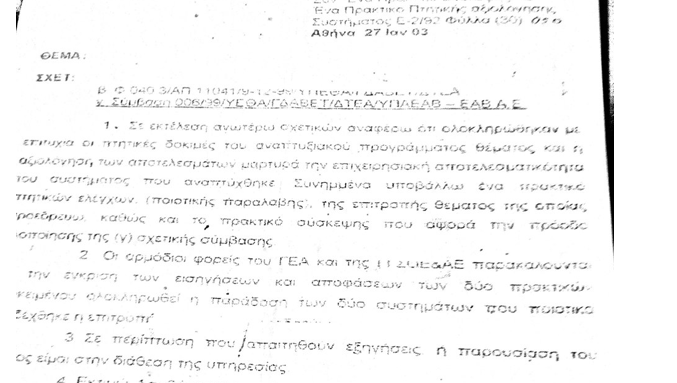 Ένα Πρακτικό Πτητικής αξιολόγησης,
Συστήματος Ε-2/92 Φύλλα (30)
Αθήνα 27 Ιαν 03
ΘΕΜΑ:
ΣΧΕΤ:
β. Φ.040.3/ΑΠ.11041/9-12-99/ΥΠΕΘΑ/ΓΔΑΒΕΤ/ΔΤΕΑ
γ. Σύμβαση 006/99/ΥΕΘΑ/ΓΔΑΒΕΤ/ΔΤΕΑ/ΥΠ/ΕΑΒ – ΕΑΒ Α.Ε
1. Σε εκτέλεση ανωτέρω σχετικών αναφέρω ότι ολοκληρώθηκαν με
επιτυχία οι πτητικές δοκιμές του αναπτυξιακού προγράμματος θέματος και η
αξιολόγηση των αποτελεσμάτων μαρτυρά την επιχειρησιακή αποτελεσματικότητα
του συστήματος που αναπτύχθηκε Συνημμένα υποβάλλω ένα πρακτικό
πτητικών ελέγχων, (ποιοτικής παραλαβής), της επιτροπής θέματος της οποίας
ροεδρεύω, καθώς και το πρακτικό σύσκεψης που αφορά την πρόοδο
οποίησης της (γ) σχετικής σύμβασης
2 Οι αρμόδιοι φορείς του ΓΕΑ και της παρακαλούνται
την έγκριση των εισηγήσεων και αποφάσεων των δύο πρακτικών
κειμένου ολοκληρωθεί η παράδοση των δύο συστημάτων που ποιοτικά
δέχθηκε η επιτροπή
3 Σε περίπτωση που απαιτηθούν εξηγήσεις ή παρουσίαση του
ος είμαι στην διάθεση της υπηρεσίας
4